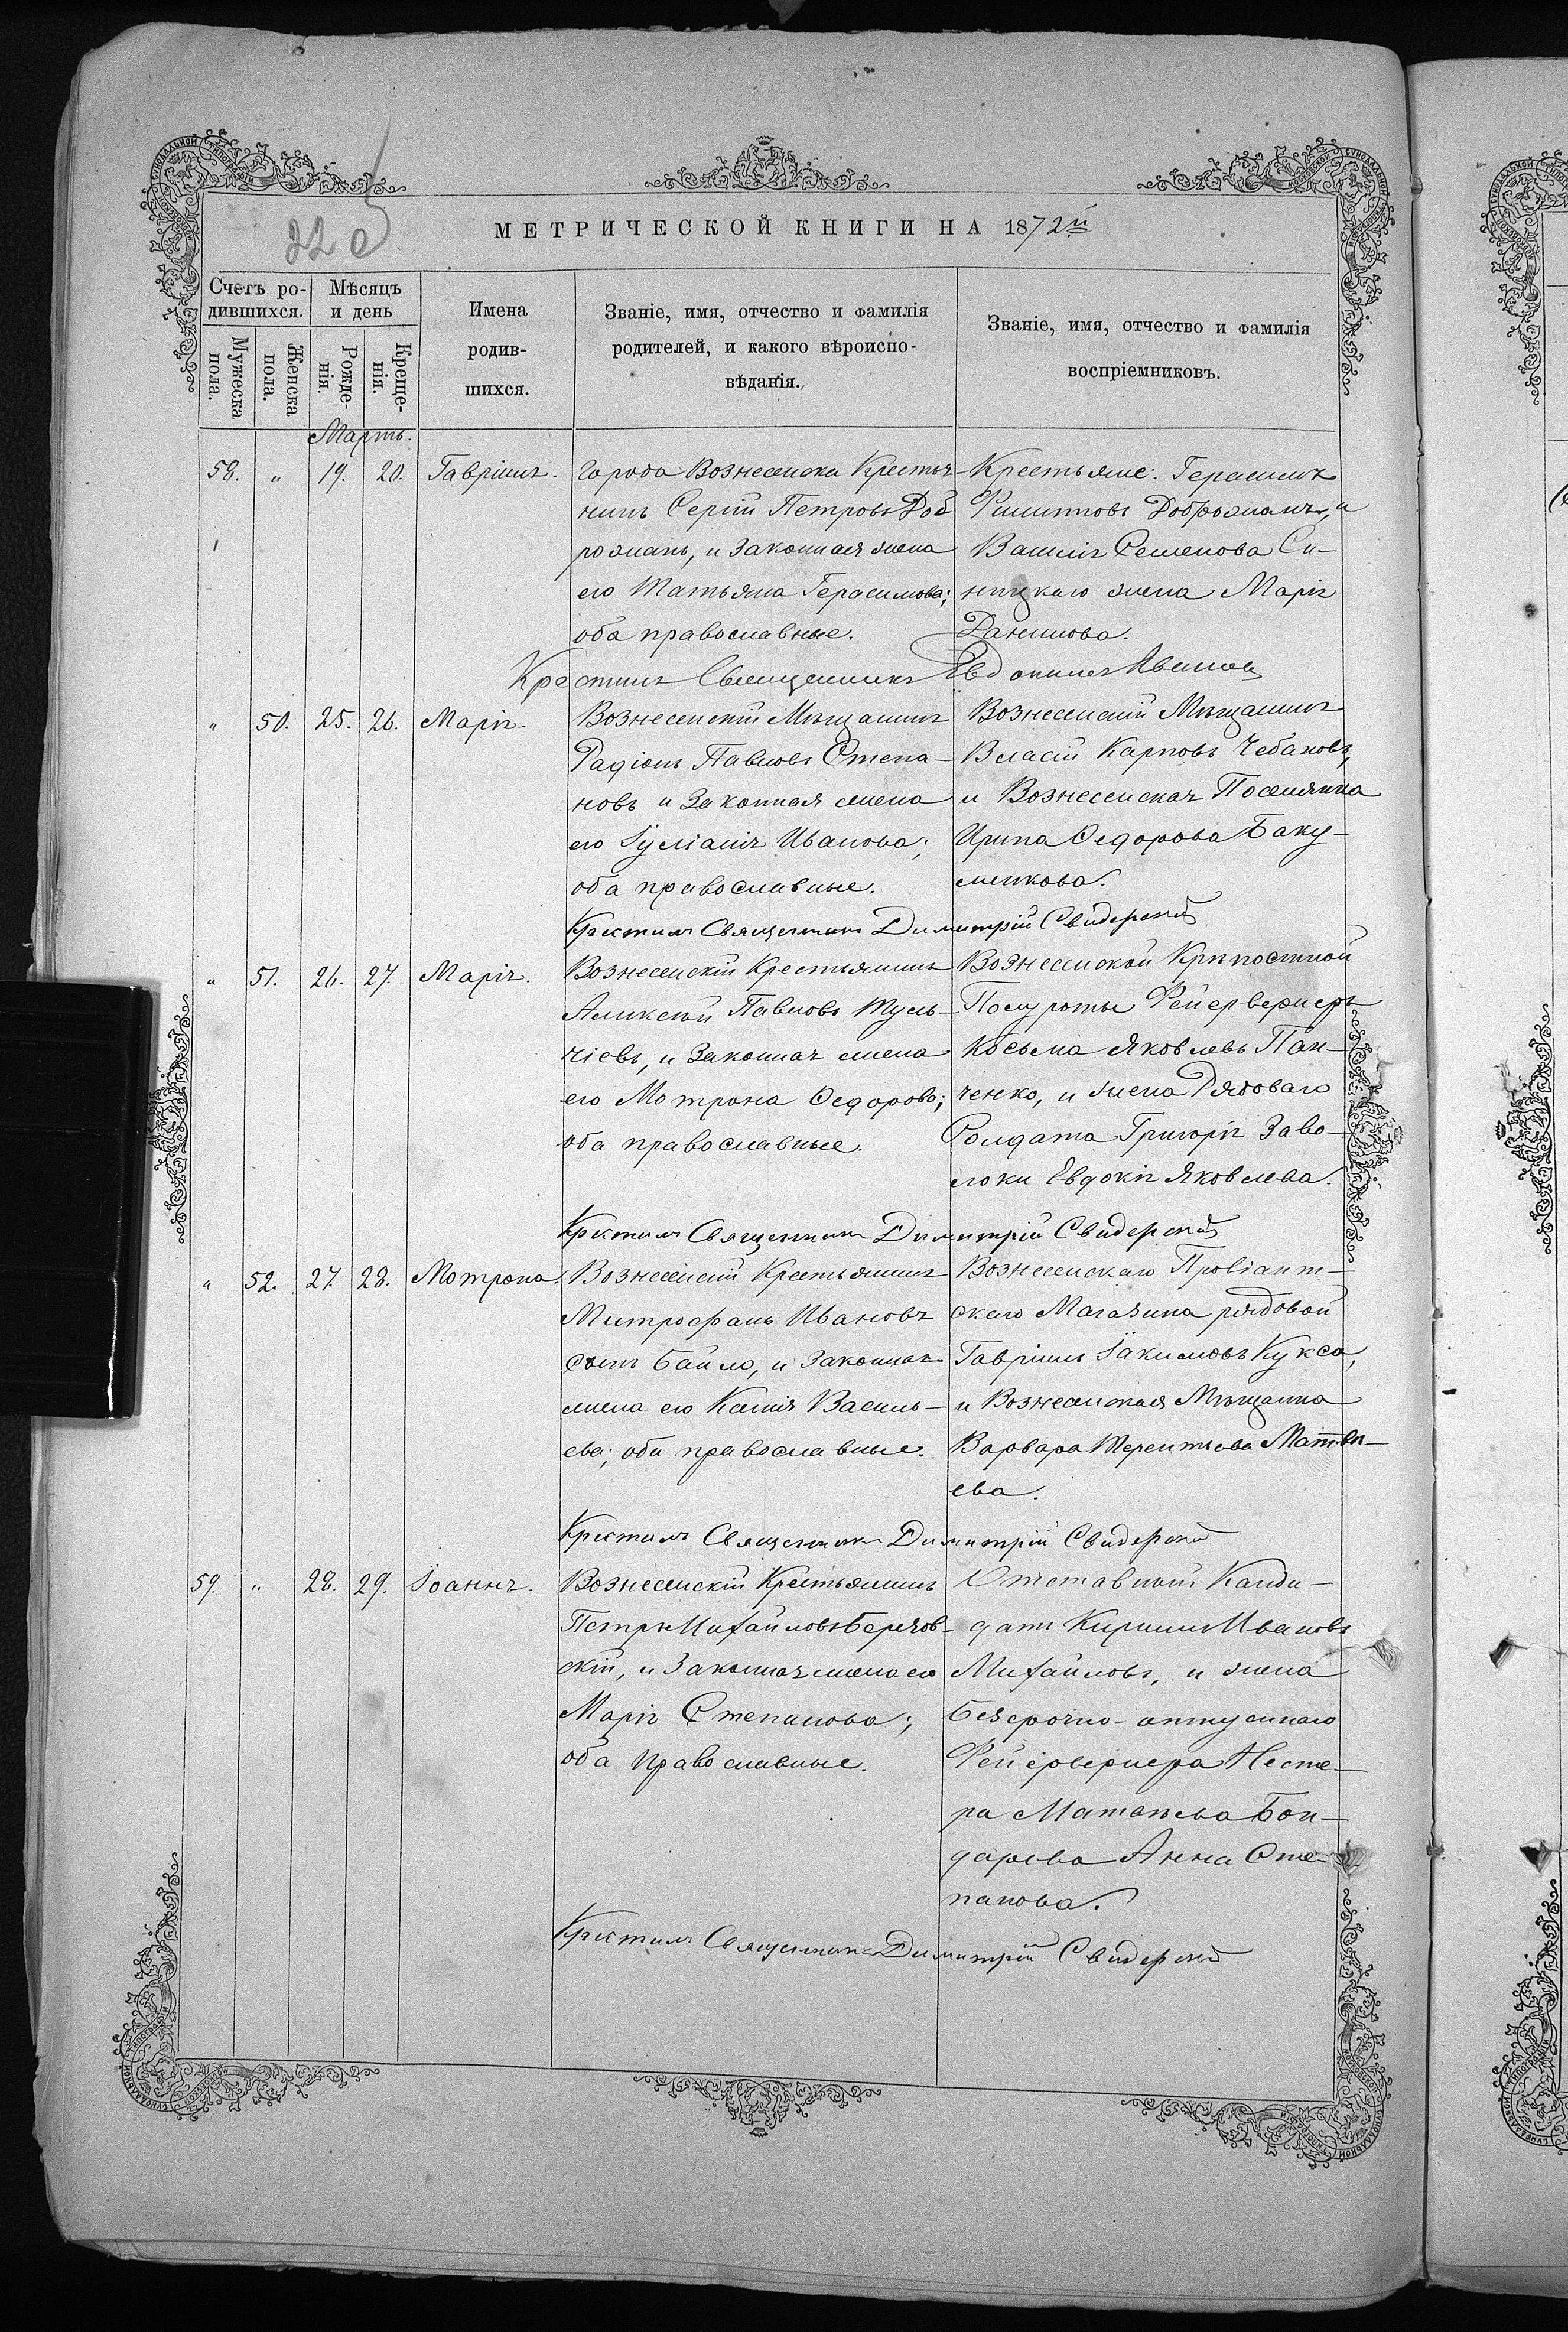 22 об
МЕТРИЧЕСКОЙ КНИГИ НА 1872й
Счетъ ро-
дившихся.
Мужеска пола.
Женска пола.
Мѣсяцъ
и день
Рожде-
нія.
Креще-
нія.
Имена
родив-
шихся.
Званіе, имя, отчество и фамилія
родителей, и какого вѣроиспо-
вѣданія.
Званіе, имя, отчество и фамилія
воспріемниковъ.
Мартъ.
58. " 19. 20. Гавріилъ.
Города Вознесенска Крестья-
нинъ Сергій Петровъ Доб
рожанъ, и Законная жена
его Татьяна Герасимова;
оба православные.
Крестьяне: Герасимъ
Филиповъ Доброжанъ, и
Василія Семенова Си-
ницкаго жена Марія
Данилова.
Крестилъ Священникъ Евдокимъ
" 50. 25. 26. Марія.
Вознесенскій Мѣщанинъ
Радіонъ Павловъ Степа-
новъ и Законная жена
его Іуліанія Иванова;
оба православные.
Вознесенскій Мѣщанинъ
Власій Карповъ Чебановъ,
и Вознесенская Поселянка
Ирина Федорова Баку-
менкова.
Крестилъ Священникъ Димитрій Свидерскій
" 51. 26. 27. Марія.
Вознесенскій Крестьянинъ
Аликсѣй Павловъ Туль-
чіевъ, и Законная жена
его Мотрона Федорова;
оба православные.
Вознесенской Крѣпостной
Полуроты Фейерверкеръ
Косьма Яковлевъ Пан-
ченко, и жена Рядоваго
Солдата Григорія Заво-
локи Евдокія Яковлева.
Крестилъ Священникъ Димитрій Свидерскій
" 52. 27. 28. Мотрона.
Вознесенскій Крестьянинъ
Митрофанъ Ивановъ
сынъ Байло, и Законная
жена его Ксенія Василь-
ева; оба православные.
Вознесенскаго Провіант-
скаго Магазина рядовой
Гавріилъ Іакимовъ Кукса,
и Вознесенская Мѣщанка
Варвара Терентьева Матвѣ-
ева.
Крестилъ Священникъ Димитрій Свидерскій
59. " 28. 29. Іоаннъ.
Вознесенскій Крестьянинъ
Петръ Михайловъ Березов-
скій, и Законная жена его
Марія Степанова;
оба Православные.
Отставной Канди-
датъ Кирилъ Ивановъ
Михайловъ, и жена
Безсрочно-отпускнаго
Фейерверкера Несте-
ра Матвѣева Бон-
дарева Анна Сте-
панова.
Крестилъ Священникъ Димитрій Свидерскій